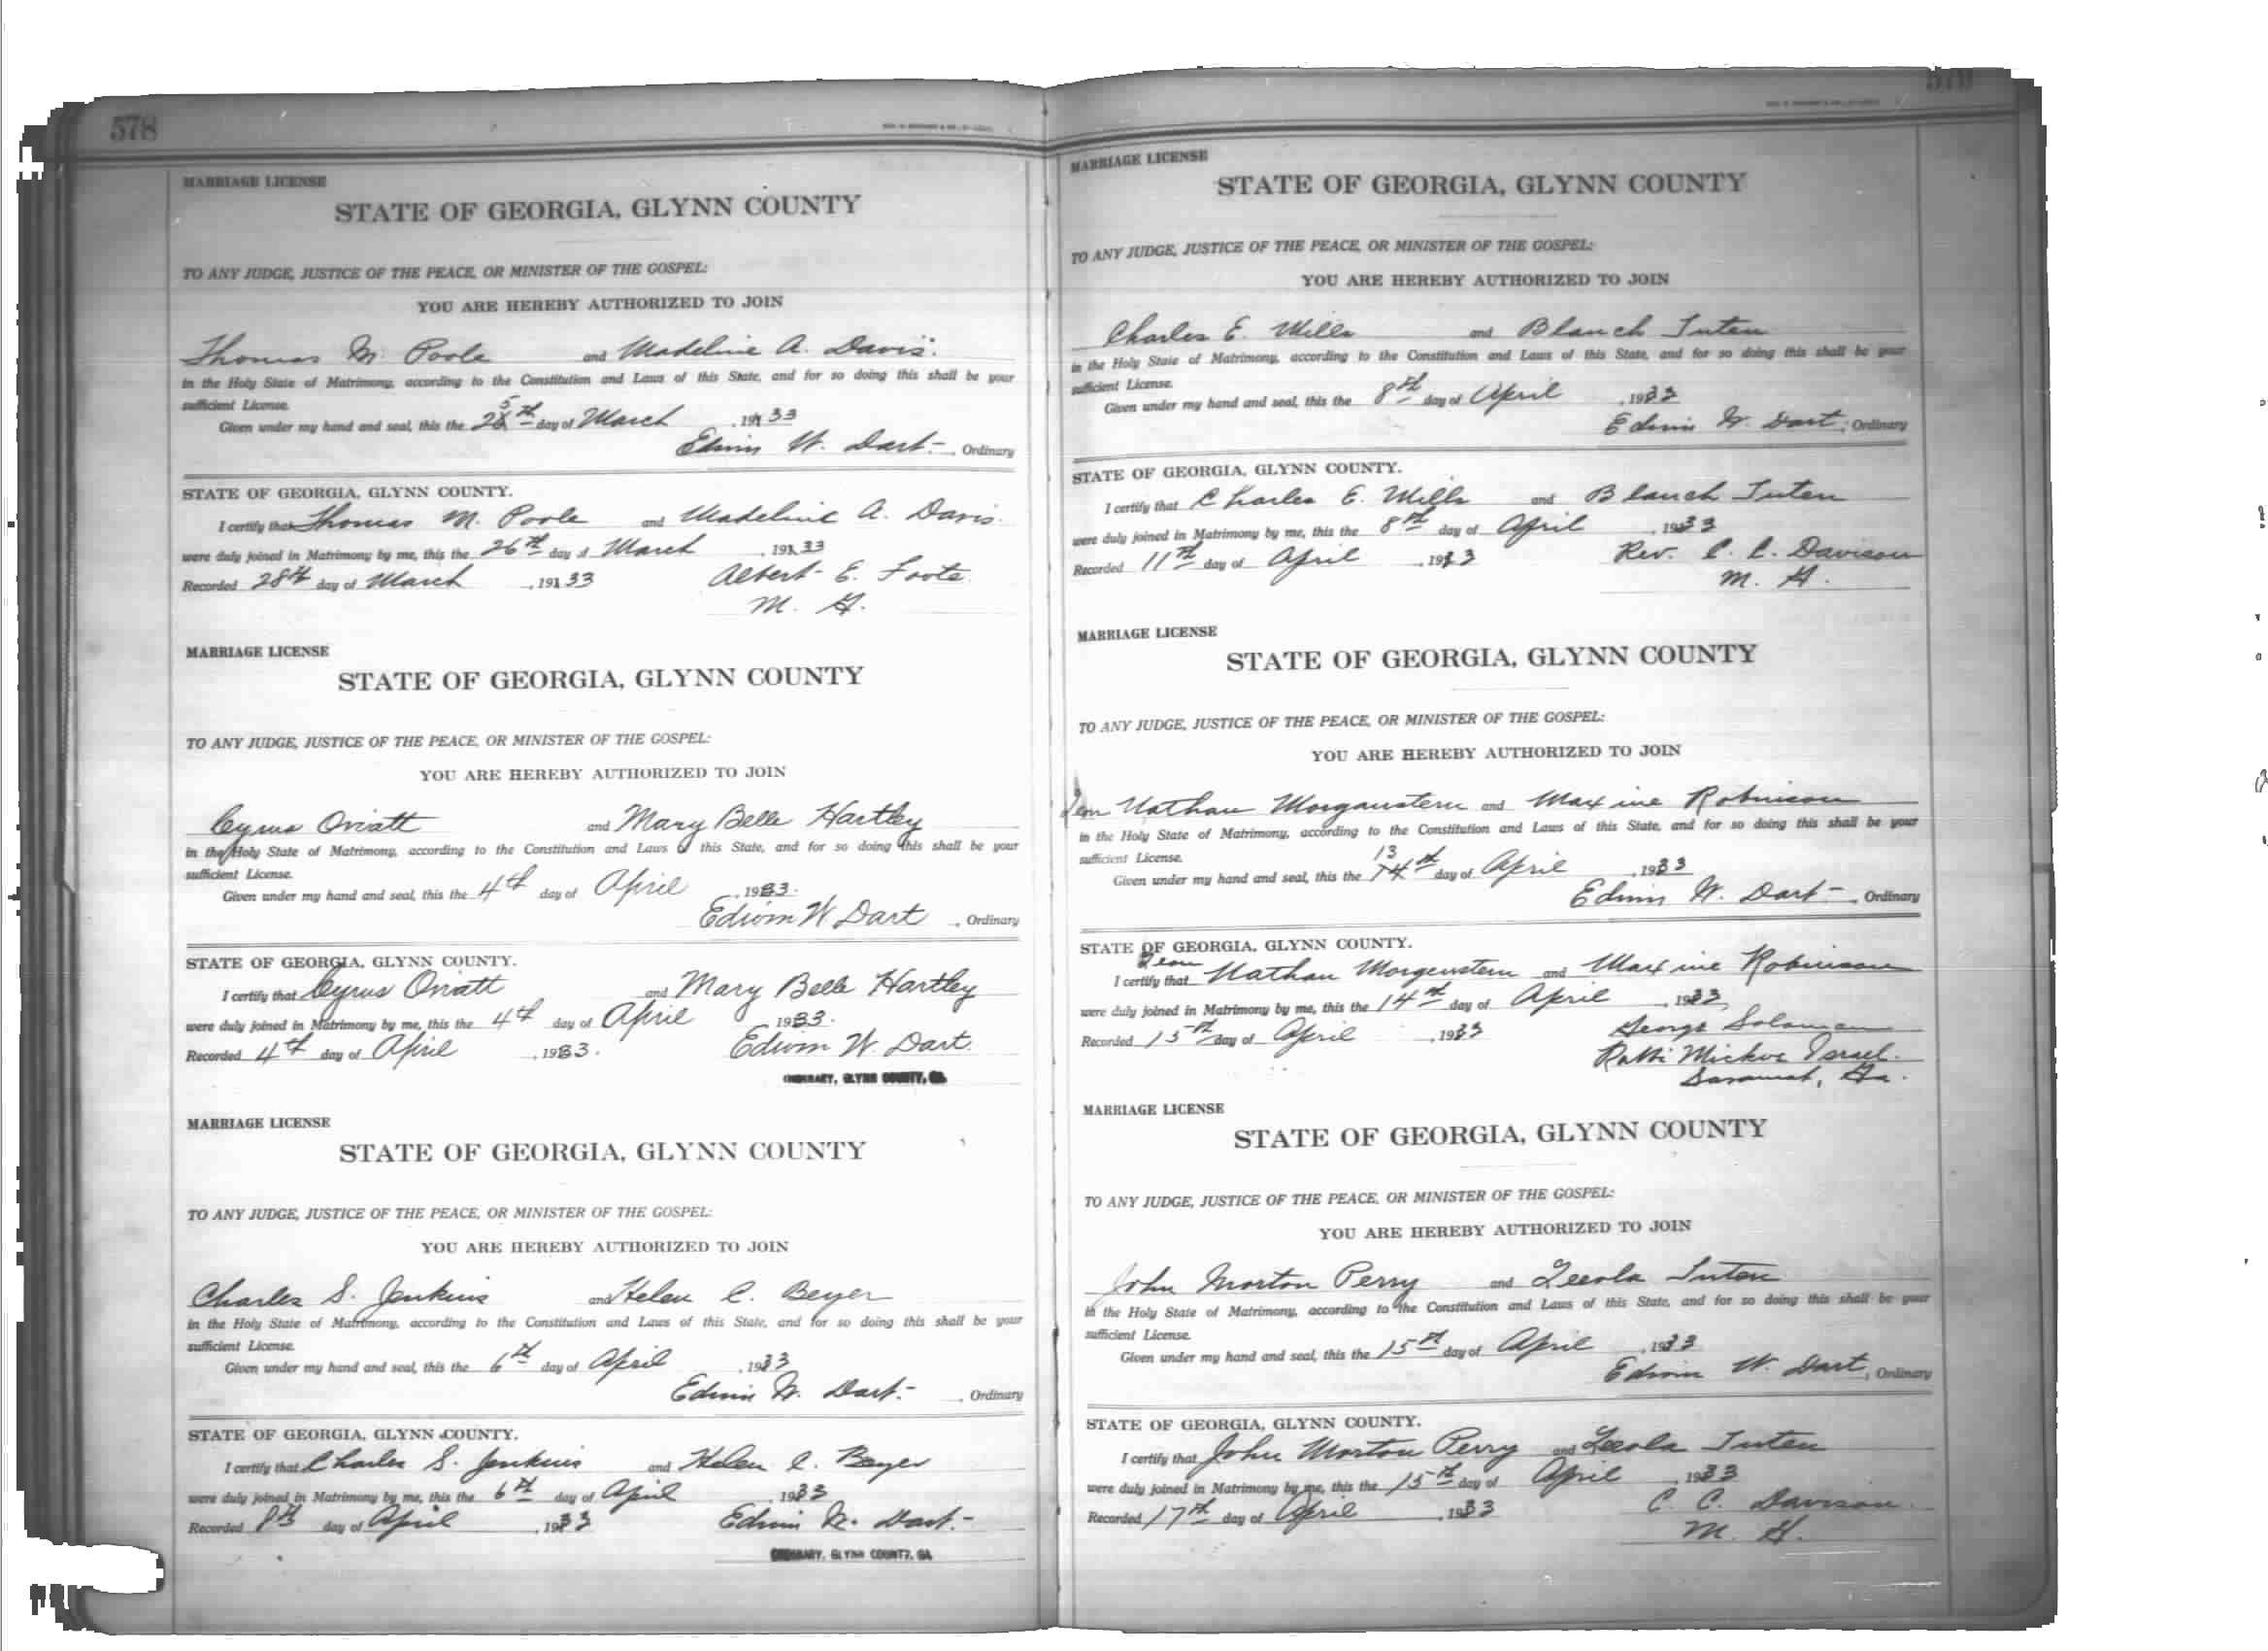 578
MARRIAGE LICENSE
STATE OF GEORGIA, GLYNN COUNTY
TO ANY JUDGE, JUSTICE OF THE PEACE, OR MINISTER OF THE GOSPEL:
YOU ARE HEREBY AUTHORIZED TO JOIN
Thomas M. Poole and Madeline A. Davis.
in the Holy State of Matrimony, according to the Constitution and Laws of this State, and for so doing this shall be your
sufficient License.
Given under my hand and seal, this the 25th day of March, 1933
Edwin W. Dart, Ordinary
STATE OF GEORGIA, GLYNN COUNTY.
I certify that Thomas M. Poole and Madeline A. Davis.
were duly joined in Matrimony by me, this the 26th day of March, 1933
Recorded 28th day of March, 1933 Albert E. Foote
M. G.
MARRIAGE LICENSE
STATE OF GEORGIA, GLYNN COUNTY
TO ANY JUDGE, JUSTICE OF THE PEACE, OR MINISTER OF THE GOSPEL:
YOU ARE HEREBY AUTHORIZED TO JOIN
Cyrus Oviatt and Mary Belle Hartley
in the Holy State of Matrimony, according to the Constitution and Laws of this State, and for so doing this shall be your
sufficient License.
Given under my hand and seal, this the 4th day of April, 1933.
Edwin W. Dart, Ordinary
STATE OF GEORGIA, GLYNN COUNTY.
I certify that Cyrus Oviatt and Mary Belle Hartley
were duly joined in Matrimony by me, this the 4th day of April, 1933.
Recorded 4th day of April, 1933. Edwin W. Dart.
ORDINARY, GLYNN COUNTY, GA.
MARRIAGE LICENSE
STATE OF GEORGIA, GLYNN COUNTY
TO ANY JUDGE, JUSTICE OF THE PEACE, OR MINISTER OF THE GOSPEL:
YOU ARE HEREBY AUTHORIZED TO JOIN
Charles S. Jenkins and Helen C. Beyer
in the Holy State of Matrimony, according to the Constitution and Laws of this State, and for so doing this shall be your
sufficient License.
Given under my hand and seal, this the 6th day of April, 1933
Edwin W. Dart, Ordinary
STATE OF GEORGIA, GLYNN COUNTY.
I certify that Charles S. Jenkins and Helen C. Beyer
were duly joined in Matrimony by me, this the 6th day of April, 1933
Recorded 8th day of April, 1933 Edwin W. Dart.
ORDINARY, GLYNN COUNTY, GA
MARRIAGE LICENSE
STATE OF GEORGIA, GLYNN COUNTY
TO ANY JUDGE, JUSTICE OF THE PEACE, OR MINISTER OF THE GOSPEL:
YOU ARE HEREBY AUTHORIZED TO JOIN
Charles E. Mills and Blanch Tuten
in the Holy State of Matrimony, according to the Constitution and Laws of this State, and for so doing this shall be your
sufficient License.
Given under my hand and seal, this the 8th day of April, 1933
Edwin W. Dart, Ordinary
STATE OF GEORGIA, GLYNN COUNTY.
I certify that Charles E. Mills and Blanch Tuten
were duly joined in Matrimony by me, this the 8th day of April, 1933
Recorded 11th day of April, 1933 Rev. C. C. Davison
M. G.
MARRIAGE LICENSE
STATE OF GEORGIA, GLYNN COUNTY
TO ANY JUDGE, JUSTICE OF THE PEACE, OR MINISTER OF THE GOSPEL:
YOU ARE HEREBY AUTHORIZED TO JOIN
Nathan Morganstern and Maxine Robinson
in the Holy State of Matrimony, according to the Constitution and Laws of this State, and for so doing this shall be your
sufficient License.
Given under my hand and seal, this the 13 14th day of April, 1933
Edwin W. Dart, Ordinary
STATE OF GEORGIA, GLYNN COUNTY.
I certify that Nathan Morgenstern and Maxine Robinson
were duly joined in Matrimony by me, this the 14th day of April, 1933
Recorded 15th day of April, 1933 George Solomon
Rabbi Mickve Israel.
Savannah, Ga.
MARRIAGE LICENSE
STATE OF GEORGIA, GLYNN COUNTY
TO ANY JUDGE, JUSTICE OF THE PEACE, OR MINISTER OF THE GOSPEL:
YOU ARE HEREBY AUTHORIZED TO JOIN
John Morton Perry and Leeola Tuten
in the Holy State of Matrimony, according to the Constitution and Laws of this State, and for so doing this shall be your
sufficient License.
Given under my hand and seal, this the 15th day of April, 1933
Edwin W. Dart, Ordinary
STATE OF GEORGIA, GLYNN COUNTY.
I certify that John Morton Perry and Leeola Tuten
were duly joined in Matrimony by me, this the 15th day of April, 1933
Recorded 17th day of April, 1933 C. C. Davison.
M. G.